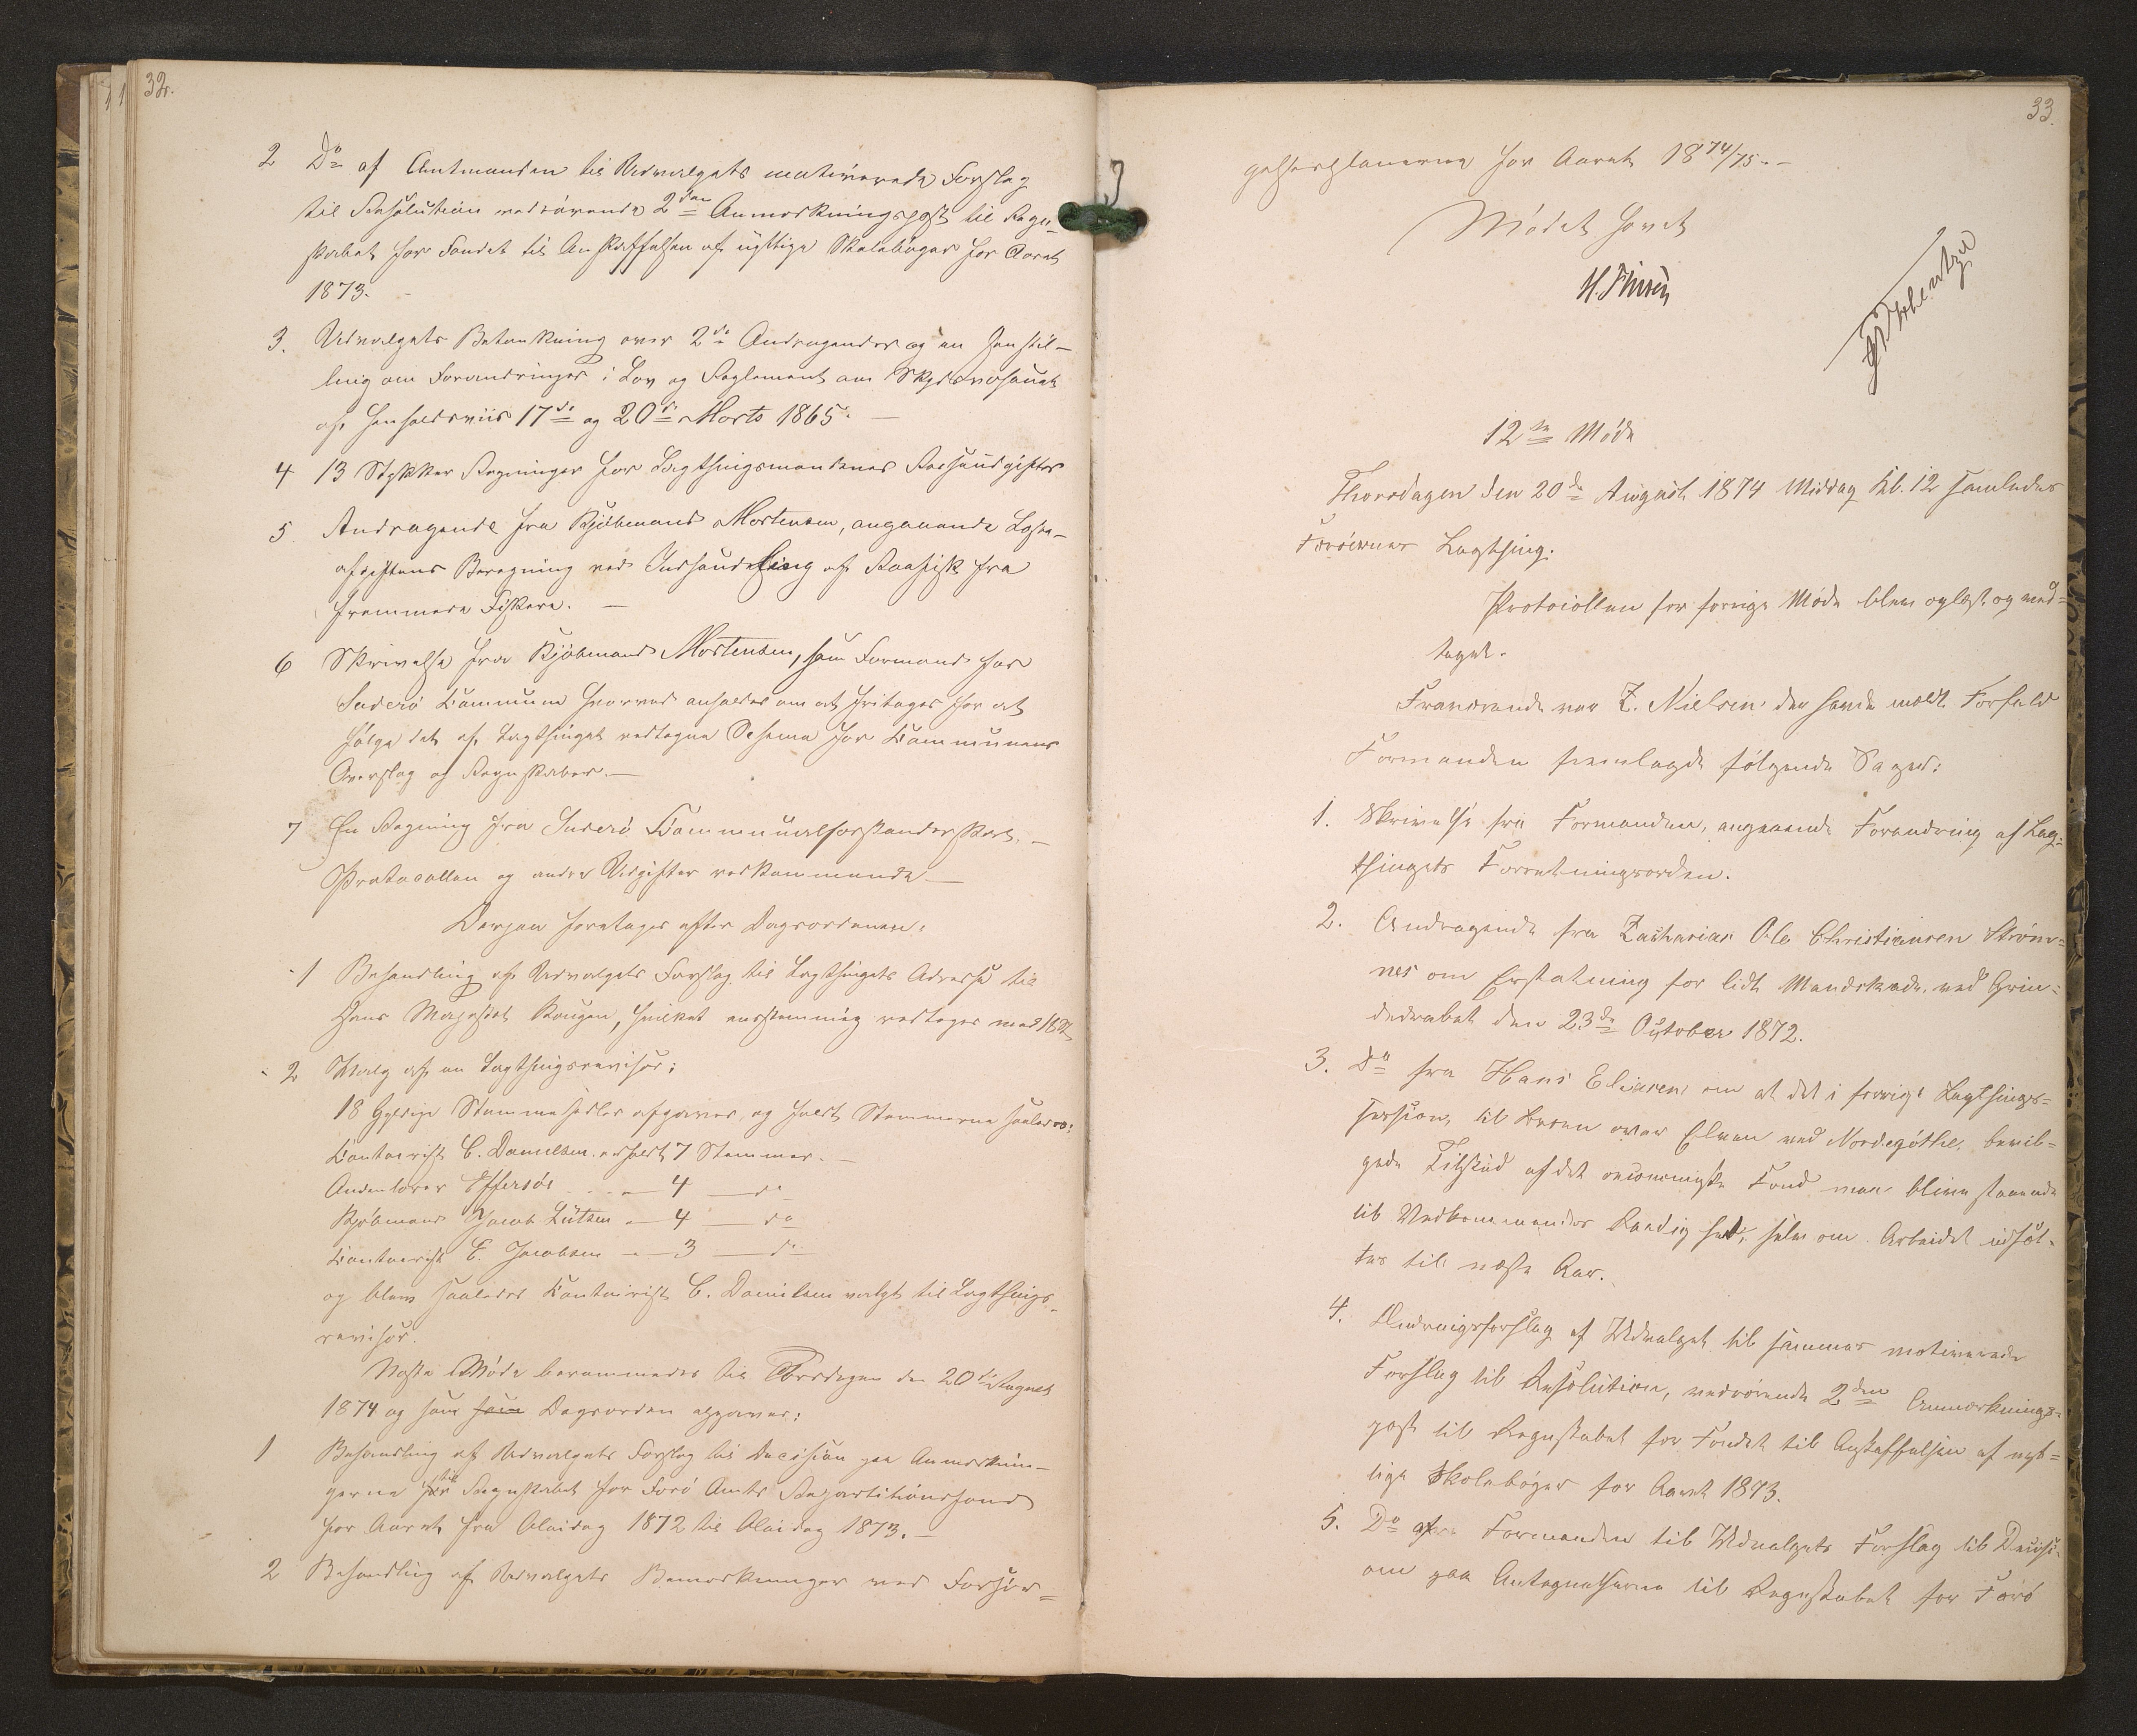 32.
2 Do af Amtmanden til Udvalgets motiverede Forslag
til Resolution vedrörende 2den Anmærkningspost til Regn-
skabet for Fondet til Anskaffelsen af nyttige Skolebøger for Aaret
1873.
3. Udvalgets Betænkning over 2de Andragender og en Henstil-
ling om Forandringer i Lov og Reglement om Skydsvæsenet
af henholdsviis 17de og 20de Marts 1865. —
4 13 Stykker Regninger for Lagthingsmændenes Reiseudgifter
5 Andragende fra Kjöbmand Mortensen, angaaende Laste-
afgiftens Beregning ved Indhandling af Raafisk fra
fremmede Fiskere. —
6 Skrivelse fra Kjöbmand Mortensen, som Formand for
Suderö Kommune hvorved anholdes om at fritages for at
følge det af Lagthinget vedtagne Schema for Kommunens
Overslag og Regnskaber. —
7 En Regning fra Suderö Kommunalforstanderskab. —
Protocollen og andre Udgifter vedkommende —
Derpaa foretoges efter Dagsordenen:
1 Behandling af Udvalgets Forslag til Lagthingets Adresse til
Hans Majestæt Kongen, hvilket eenstemmig vedtoges med 18 St.
2 Valg af en Lagthingsrevisor;
18 Gyldige Stemmesedler afgaves, og faldt Stemmerne saaledes:
Kontorist C. Danielsen erholdt 7 Stemmer. —
Andenlærer Effersöe — 4 — do
Kjöbmand Jacob Lützen — 4 — do
Kontorist E. Jacobsen — 3 — do
og blev saaledes Kontorist C. Danielsen valgt til Lagthings-
revisor.
Næste Möde berammedes til Torsdagen den 20de August
1874 og som som Dagsorden opgaves:
1 Behandling af Udvalgets Forslag til Decision paa Anmærknin-
gerne for til Regnskabet for Færö Amts Repartitionsfond
for Aaret fra Maidag 1872 til Maidag 1873. —
2 Behandling af Udvalgets Bemærkninger ved Forsör-
33.
gelsesplanerne for Aaret 1874/75. —
Mødet hævet
H. Finsen
12te Möde
Thorsdagen den 20de August 1874 Middag Kl. 12 samledes
Færöernes Lagthing.
Protocollen for forrige Möde blev oplæst og ved-
taget.
Fraværende var Z. Nielsen, der havde meldt Forfald
Formanden fremlagde følgende Sager:
1. Skrivelse fra Formanden, angaaende Forandring af Lag-
thingets Forretningsorden.
2. Andragende fra Zacharias Ole Christiansen Ström-
næs om Erstatning for lidt Mandskade ved Grin-
dedrabet den 23de October 1872.
3. Do fra Hans Eliasen om at det i forrige Lagthings-
session, til Broen over Elven ved Nordregöthe, bevil-
gede Tilskud af det oeconomiske Fond maa blive staaende
til Vedkommendes Raadighed, selv om Arbeidet udsæt-
tes til næste Aar.
4. Ændringsforslag af Udvalget til sammes motiverede
Forslag til Resolution, vedrörende 2den Anmærknings-
post til Regnskabet for Fondet til Anskaffelsen af nyt-
tige Skolebøger for Aaret 1873.
5. Do af Formanden til Udvalgets Forslag til Decisi-
on paa Antegnelserne til Regnskabet for Færö